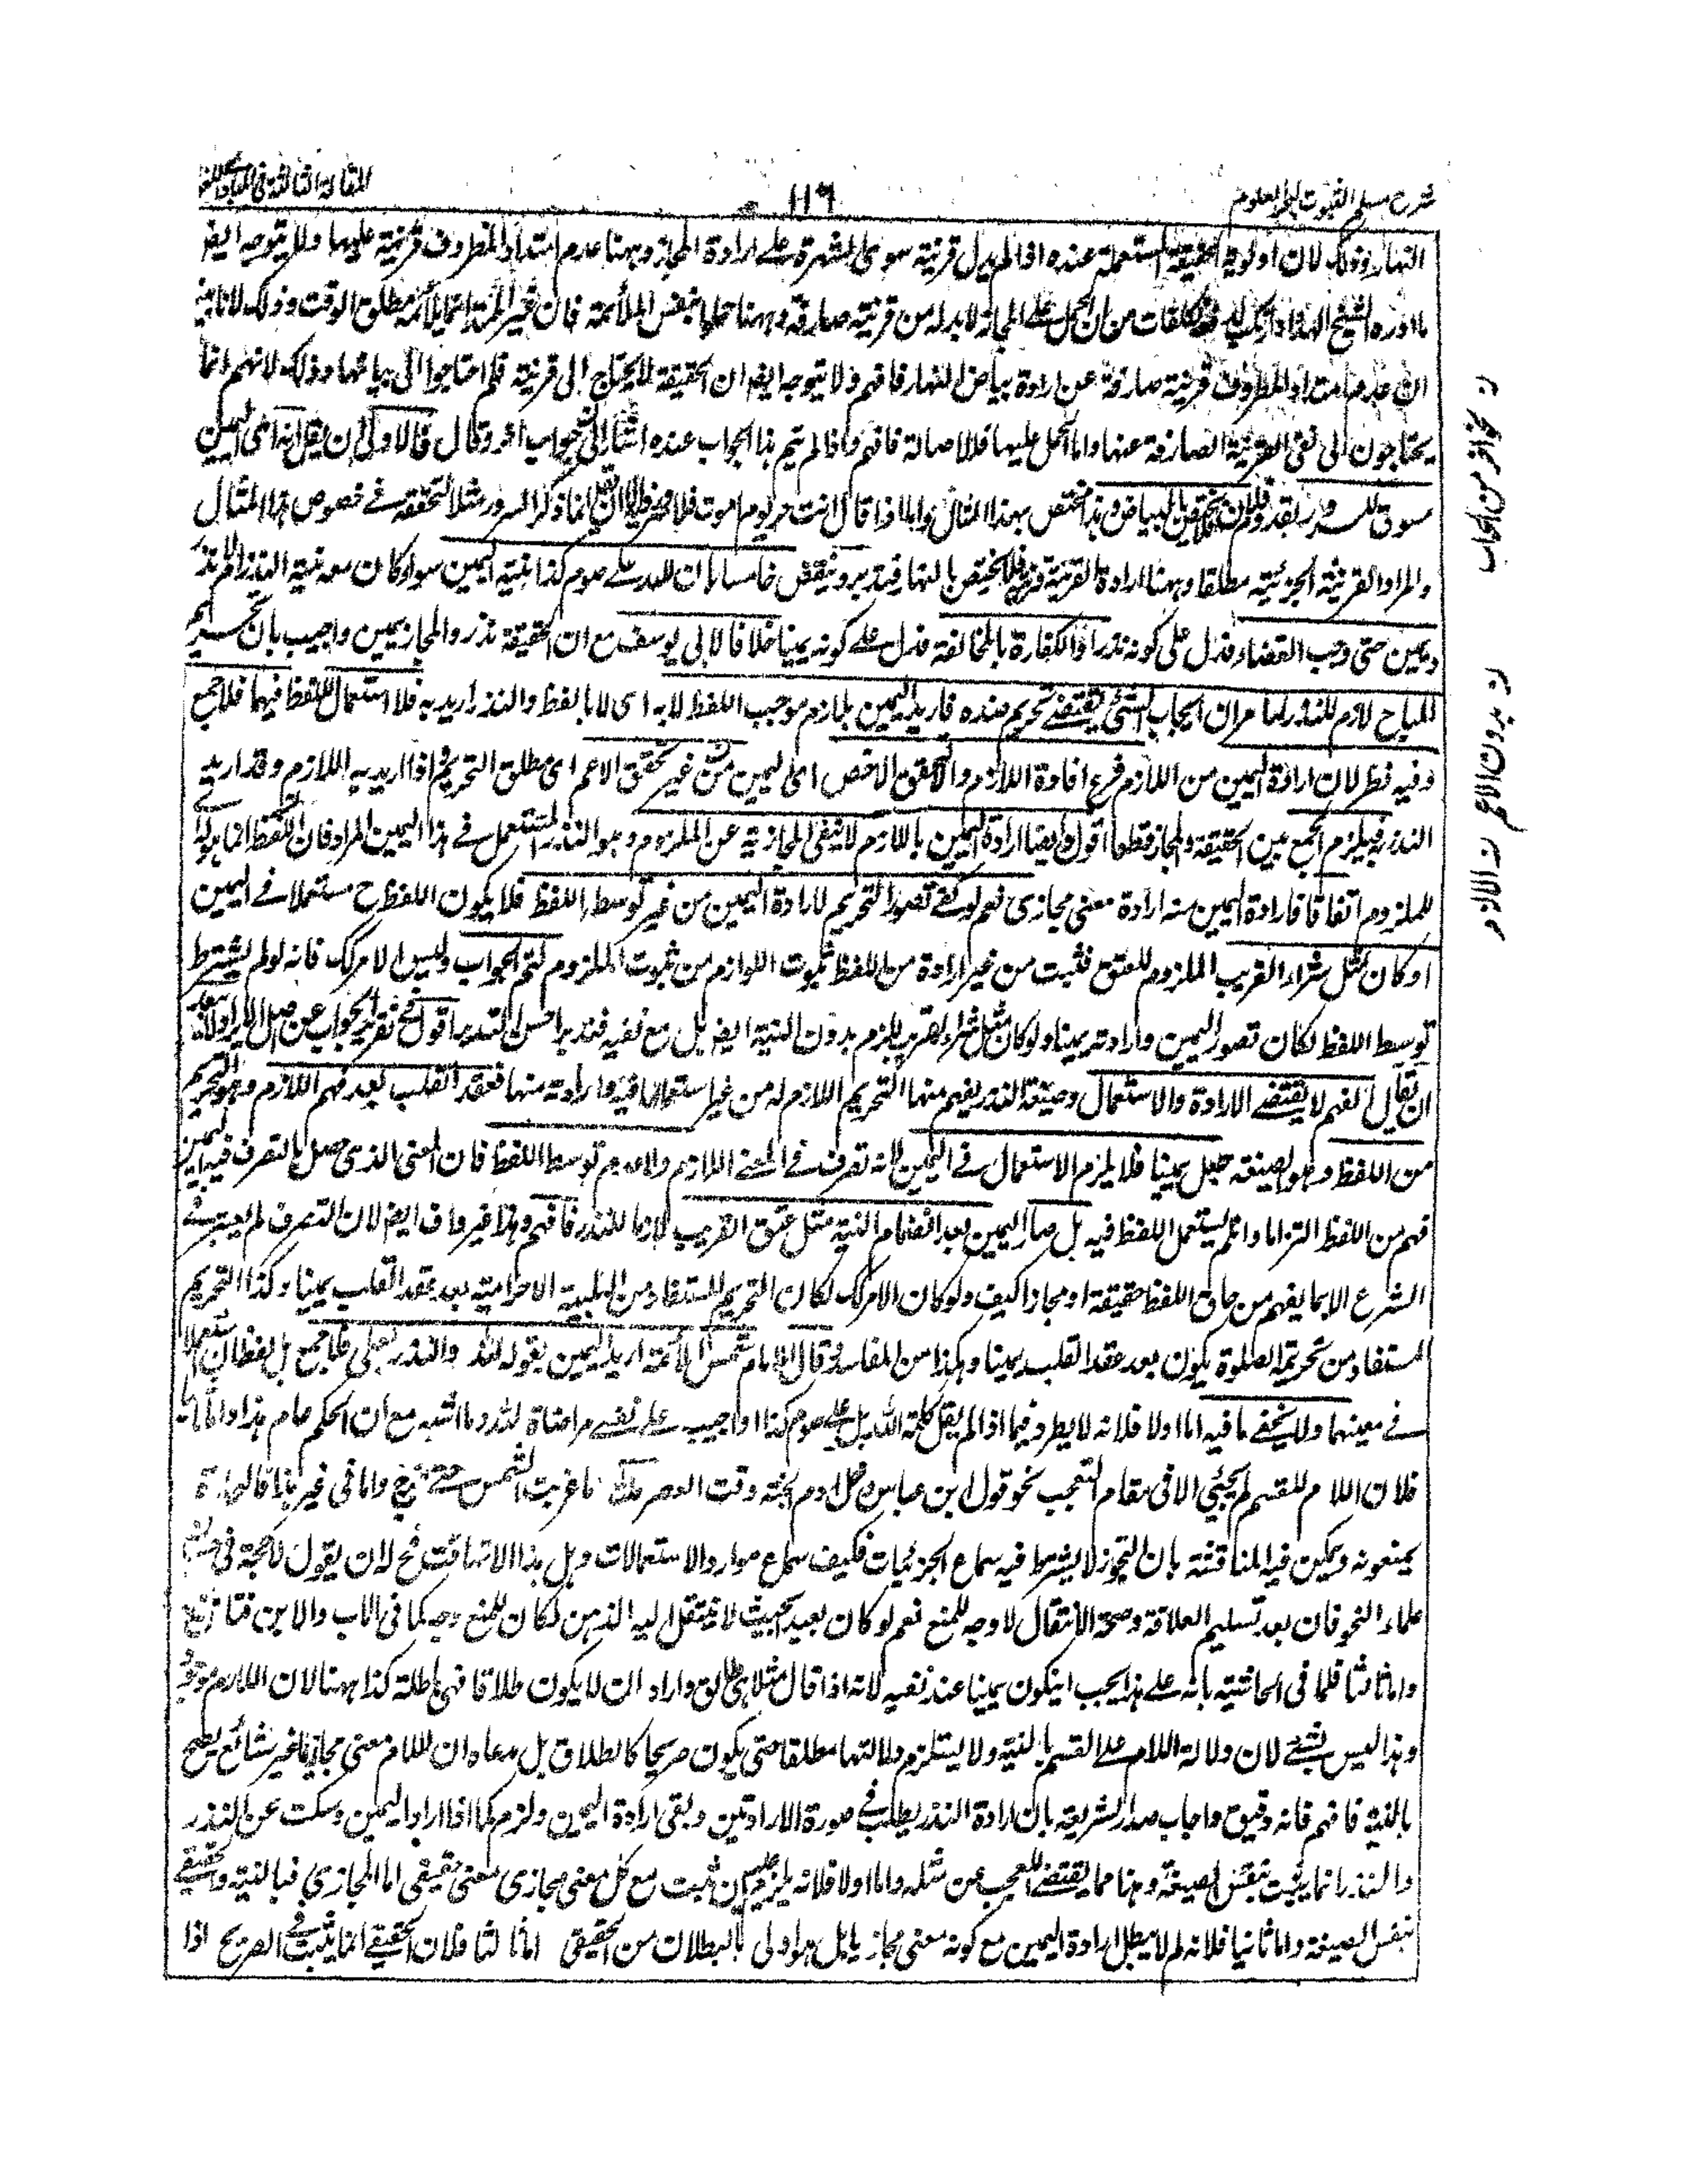 شرح مسلم الثبوت لبحر العلوم
١١٦
المقالة الثالثة في المبادي اللغوية
النهار وذلك لان اولوية الحقيقة المستعملة عنده اذا لم يدل قرينة سوى الشهرة على ارادة المجاز وههنا عدم امتداد المظروف قرينة عليها ولا يتوجه ايضا
ما اورده الشيخ الهداد من ان الحمل على المجاز لا بد له من قرينة صارفة وههنا حملوا بنفس الملائمة فان غير الممتد انما يلائمه مطلق الوقت وذلك لانا
ان عدم امتداد المظروف قرينة صارفة عن ارادة بياض النهار فافهم ولا يتوجه ايضا ان الحقيقة لا يحتاج الى قرينة فلم احتاجوا الى بيانها وذلك لانهم انما
يحتاجون الى نفي القرينة الصارفة عنها واما الحمل عليها فللاصالة فافهم واذا لم يتم هذا الجواب عنده اشار الى جواب اخر وقال فالاولى ان يقال انه اي اليمين
للسرور بقدوم فلان فلا يختص بالبياض وهذا مختص بهذا المثال واما اذا قال انت حر يوم اموت فلا انما ذكر السرور مثلا لتحققه في خصوص هذا المثال
والمراد القرينة الجزئية مطلقا وههنا ارادة القرينة فلا يختص بالنهار فتدبر وينقض خامسا بان لله علي صوم كذا بنية اليمين سواء كان معه نية النذر ام لا نذر
ويمين حتى وجب القضاء فدل على كونه نذرا والكفارة بالمخالفة فدل على كونه يمينا خلافا لابي يوسف مع ان الحقيقة نذر والمجاز يمين واجيب بان تحريم
المباح لازم للنذر لما مر ان ايجاب الشيء يقتضي تحريم ضده فاريد اليمين بلازم موجب اللفظ لا به اي لا باللفظ والنذر اريد به فلا استعمال للفظ فيهما فلا جمع
وفيه نظر لان ارادة اليمين من اللازم فرع افادة اللازم والا تحقق الاخص اي اليمين من غير تحقق الاعم اي مطلق التحريم اذا اريد به اللازم وقد اريد
النذر فيلزم الجمع بين الحقيقة والمجاز قطعا اقول وايضا ارادة اليمين باللازم لا ينفي المجازية عن الملزوم وهو النذر المستعمل في هذا اليمين المراد فان اللفظ انما هو
للملزوم اتفاقا فارادة اليمين منه ارادة معنى مجازي نعم لو كفى تصور التحريم لارادة اليمين من غير توسط اللفظ فلا يكون اللفظ ح مستعملا في اليمين
او كان مثل شراء القريب الملزوم للعتق فثبت من غير ارادة من اللفظ ثبوت اللوازم من ثبوت الملزوم لتم الجواب وليس الامر كك فانه لو لم يشترط
توسط اللفظ لكان تصور اليمين وارادته يمينا ولو كان مثل شراء القريب للزم بدون النية ايضا بل مع نفيه فتدبر احسن التدبر اقول في تقرير الجواب عن اصل الايراد
ان يقال الفهم لا يقتضي الارادة والاستعمال وصيغة النذر يفهم منها التحريم اللازم له من غير استعمالها فيه وارادته منها فعقد القلب بعد فهم اللازم وهو التحريم
من اللفظ وهو الصيغة جعل يمينا فلا يلزم الاستعمال في اليمين لانه تصرف في المعنى اللازم ولا عدم توسط اللفظ فان المعنى الذي حصل بالتصرف فيه اليمين
فهم من اللفظ التزاما وان لم يستعمل اللفظ فيه بل صار اليمين بعد انضمام النية مثل عتق القريب لازما للنذر فافهم وهذا غير واف ايضا لان التصرف لم يعتبر في
الشرع الا بما يفهم من حاق اللفظ حقيقة او مجازا كيف ولو كان الامر كك لكان التحريم المستفاد من التلبية الاحرامية بعد عقد القلب يمينا وكذا التحريم
المستفاد من تحريمة الصلوة يكون بعد عقد القلب يمينا وهكذا من المفاسد وقال الامام شمس الائمة اريد اليمين بقوله لله والنذر بعلي فلا جمع بل لفظان استعملا
في معنيهما ولا يخفى ما فيه اما اولا فلانه لا يطرد فيما اذا لم يقل كلمة الله بل علي صوم كذا او اجيب على نفسي مرضاة لله وما اشبه مع ان الحكم عام هذا واما ثانيا
فلان اللام للقسم لم يجئ الا في مقام التعجب نحو قول ابن عباس دخل ادم الجنة وقت العصر فلله ما غربت الشمس حتى خرج واما في غيره فالنحاة
يمنعونه ويمكن فيه المناقشة بان التجوز لا يشترط فيه سماع الجزئيات فكيف سماع موارد الاستعمالات وهل هذا الا تهافت فح لان يقول لا حجة في منع
علماء النحو فان بعد تسليم العلاقة وصحة الانتقال لا وجه للمنع نعم لو كان بعيدا بحيث لا ينتقل اليه الذهن لكان للمنع وجه كما في الاب والابن
واما ثالثا فلما في الحاشية بانه على هذا يجب ان يكون يمينا عند نفيه لانه اذا قال مثلا هي طالق واراد ان لا يكون طلاقا فهي باطلة كذا ههنا لان اللازم
وهذا ليس بشيء لان دلالة اللام على القسم بالنية ولا يستلزم دلالتها مطلقا حتى يكون صريحا كالطلاق بل مدعاه ان للام معنى مجازيا غير شائع يصح
بالنية فافهم فانه دقيق واجاب صدر الشريعة بان ارادة النذر يبطل في صورة الارادتين وبقى ارادة اليمين ولزم كما اذا اراد اليمين وسكت عن النذر
والنذر انما يثبت بنفس الصيغة وهنا مما يقتضي العجب عن مثله واما اولا فلانه يلزم ان يثبت مع كل معنى مجازي معنى حقيقي اما المجازي فبالنية والحقيقي
بنفس الصيغة واما ثانيا فلانه لم لا يبطل ارادة اليمين مع كونه معنى مجازيا بل هو اولى بالبطلان من الحقيقي اما ثالثا فلان الحقيقي انما يثبت في الصريح اذا
بدون الاعم